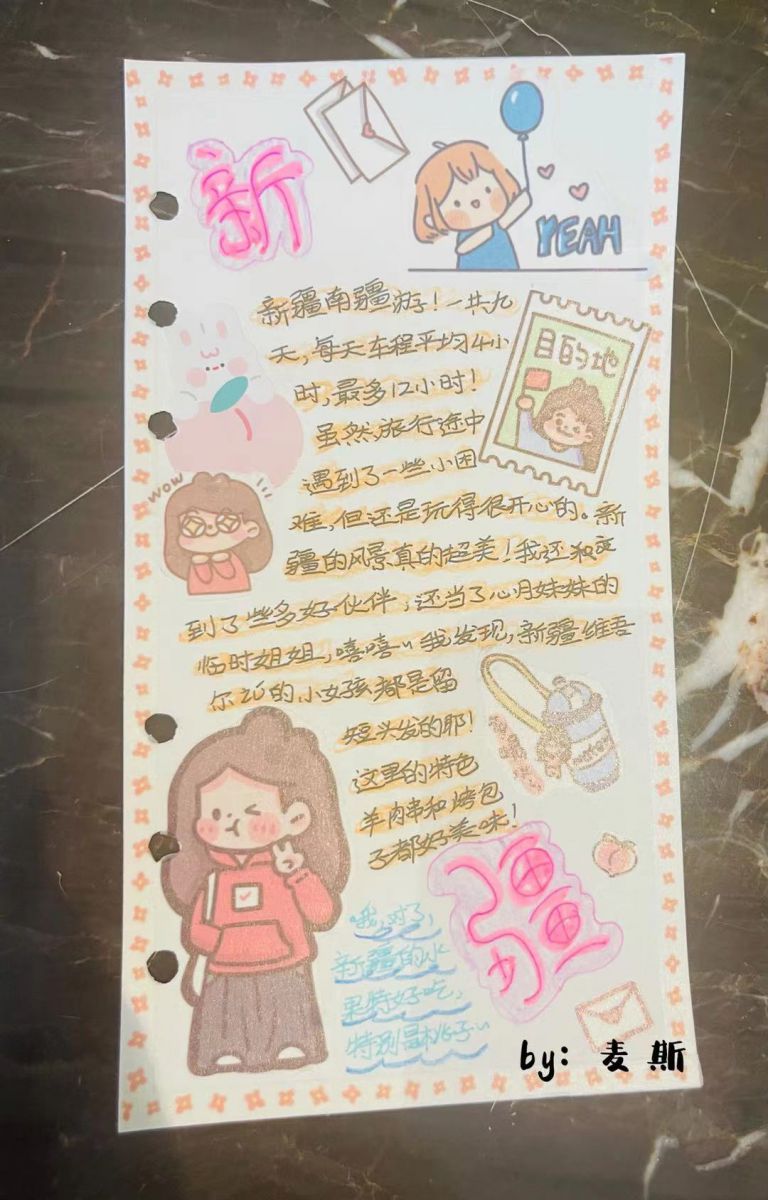 新
YEAH
新疆南疆游！一共九
天，每天车程平均4小
时，最多12小时！
目的地
虽然旅行途中
遇到了一些小困
难，但还是玩得很开心的。新
疆的风景真的超美！我还交
到了些多好伙伴，还当了心月妹妹的
临时姐姐，嘻嘻~我发现，新疆维吾
尔的小女孩都是留
短头发的耶！
这里的特色
羊肉串和烤包
子都好美味！
wow
疆
哦，对了，
新疆的水
果特好吃，
特别是桃子~
by: 麦斯